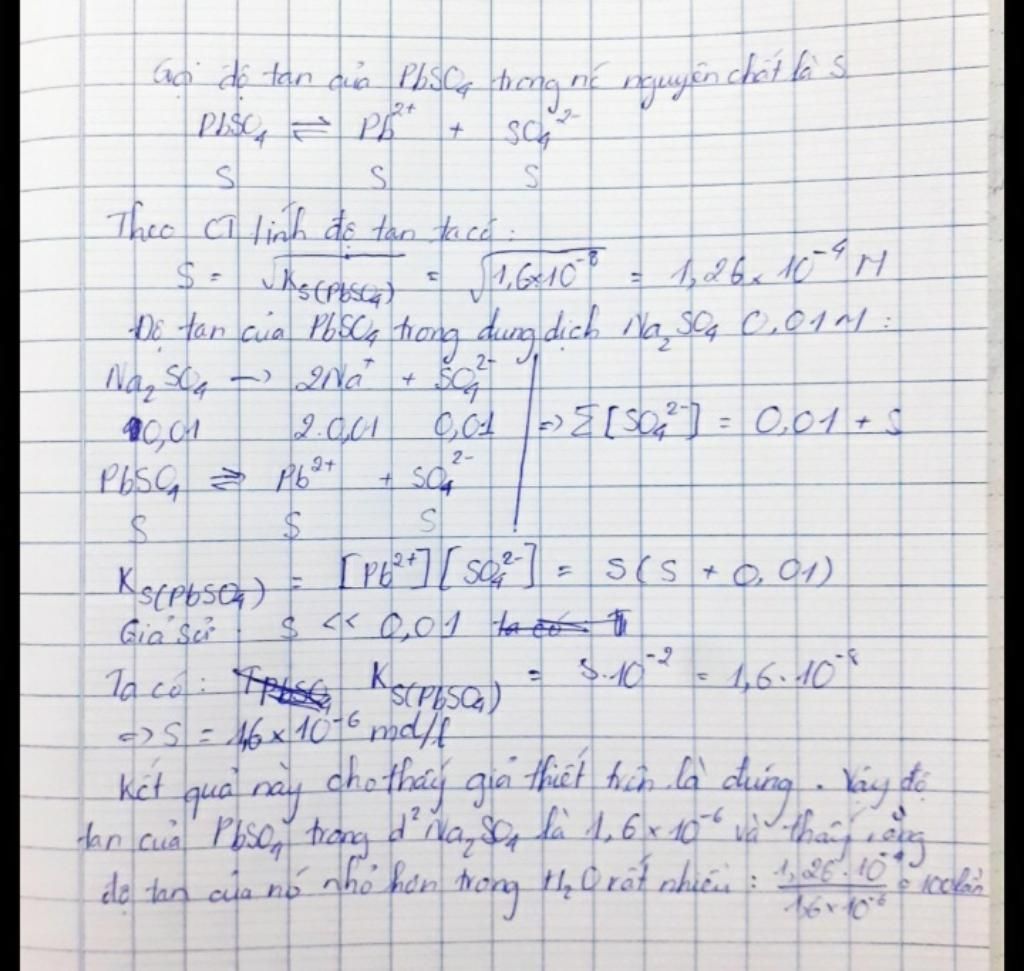 Gọi độ tan của PbSO₄ trong nc nguyên chất là S
PbSO₄ ⇌ Pb²⁺ + SO₄²⁻
S S S
Theo CT tính độ tan ta có:
S = √K_S(PbSO₄) = √1,6×10⁻⁸ = 1,26×10⁻⁴ M
Độ tan của PbSO₄ trong dung dịch Na₂SO₄ 0,01M:
Na₂SO₄ → 2Na⁺ + SO₄²⁻
0,01 2.0,01 0,01 => Σ[SO₄²⁻] = 0,01 + S
PbSO₄ ⇌ Pb²⁺ + SO₄²⁻
S S S
K_S(PbSO₄) = [Pb²⁺][SO₄²⁻] = S(S + 0,01)
Giả sử S << 0,01
Ta có: K_S(PbSO₄) = S.10⁻² = 1,6.10⁻⁸
=> S = 1,6×10⁻⁶ mol/l
Kết quả này cho thấy giả thiết trên là đúng. Vậy độ
tan của PbSO₄ trong d² Na₂SO₄ là 1,6×10⁻⁶ và thấy rằng
độ tan của nó nhỏ hơn trong H₂O rất nhiều: 1,26.10⁻⁴/1,6×10⁻⁶ = 100 lần